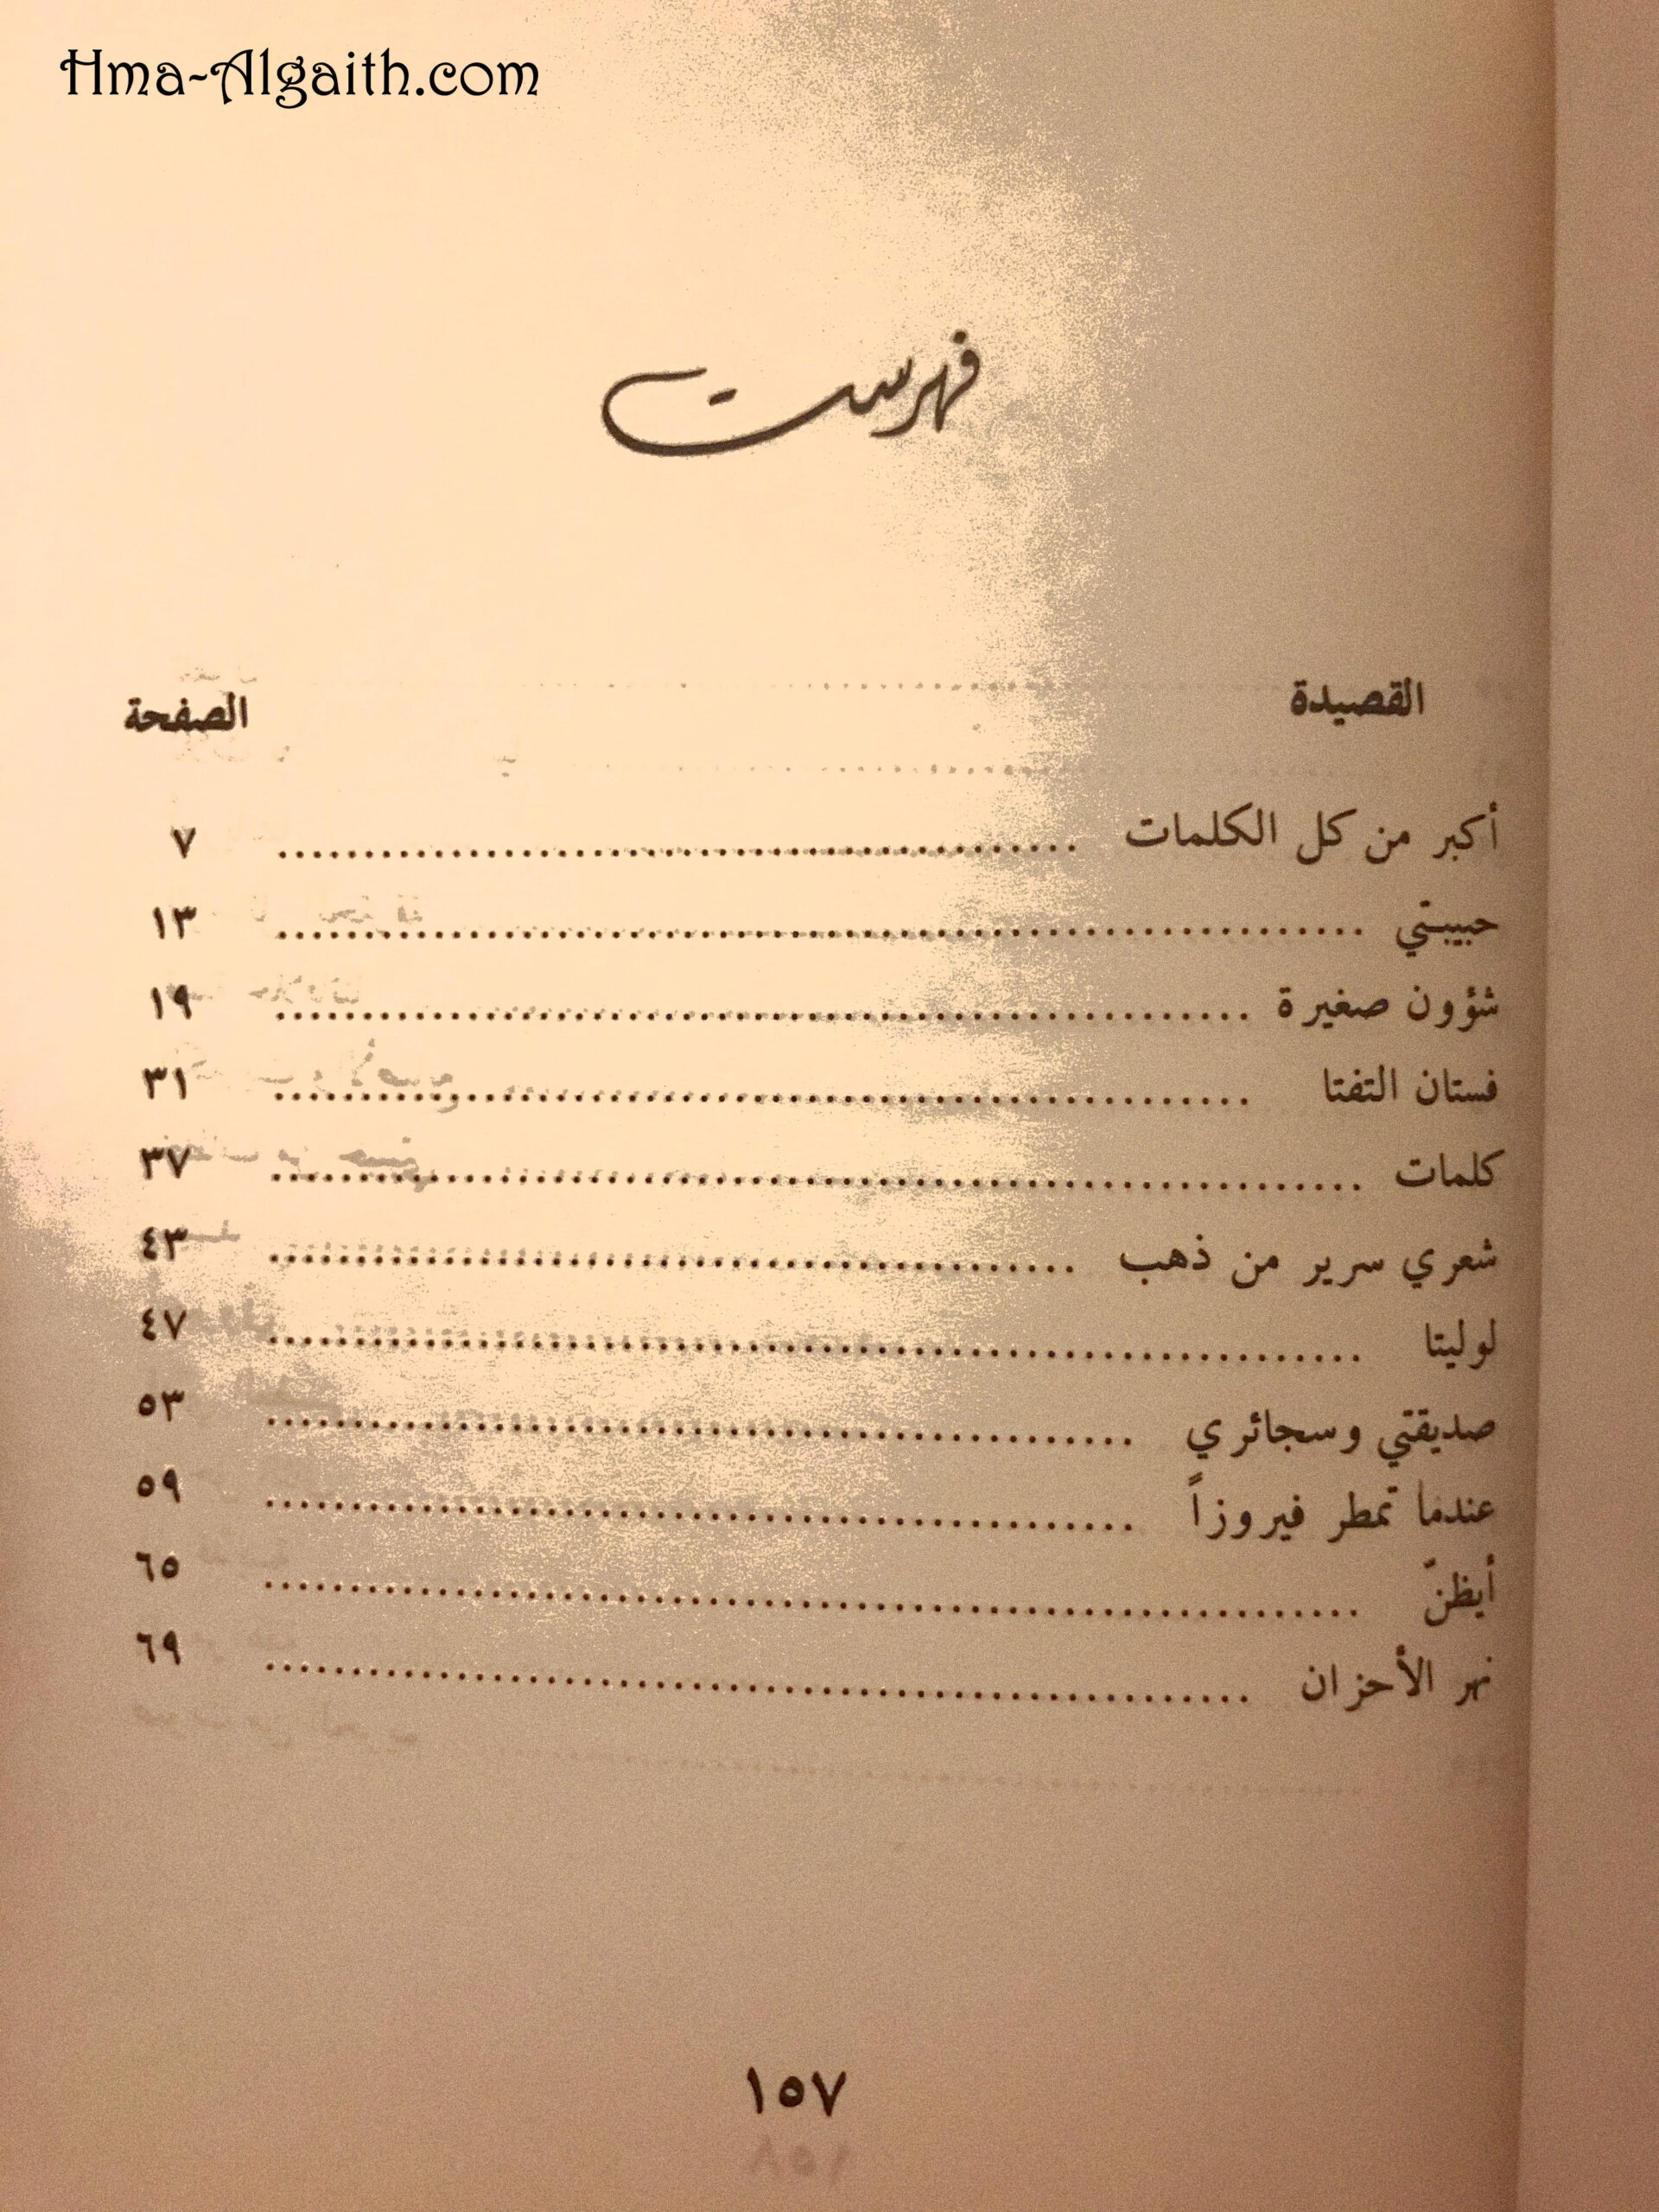 Hma-Algaith.com
فهرست
القصيدة الصفحة
أكبر من كل الكلمات ........................ ٧
حبيبتي ........................ ١٣
شؤون صغيرة ........................ ١٩
فستان التفتا ........................ ٣١
كلمات ........................ ٣٧
شعري سرير من ذهب ........................ ٤٣
لوليتا ........................ ٤٧
صديقتي وسجائري ........................ ٥٣
عندما تمطر فيروزاً ........................ ٥٩
أيظنّ ........................ ٦٥
نهر الأحزان ........................ ٦٩
١٥٧